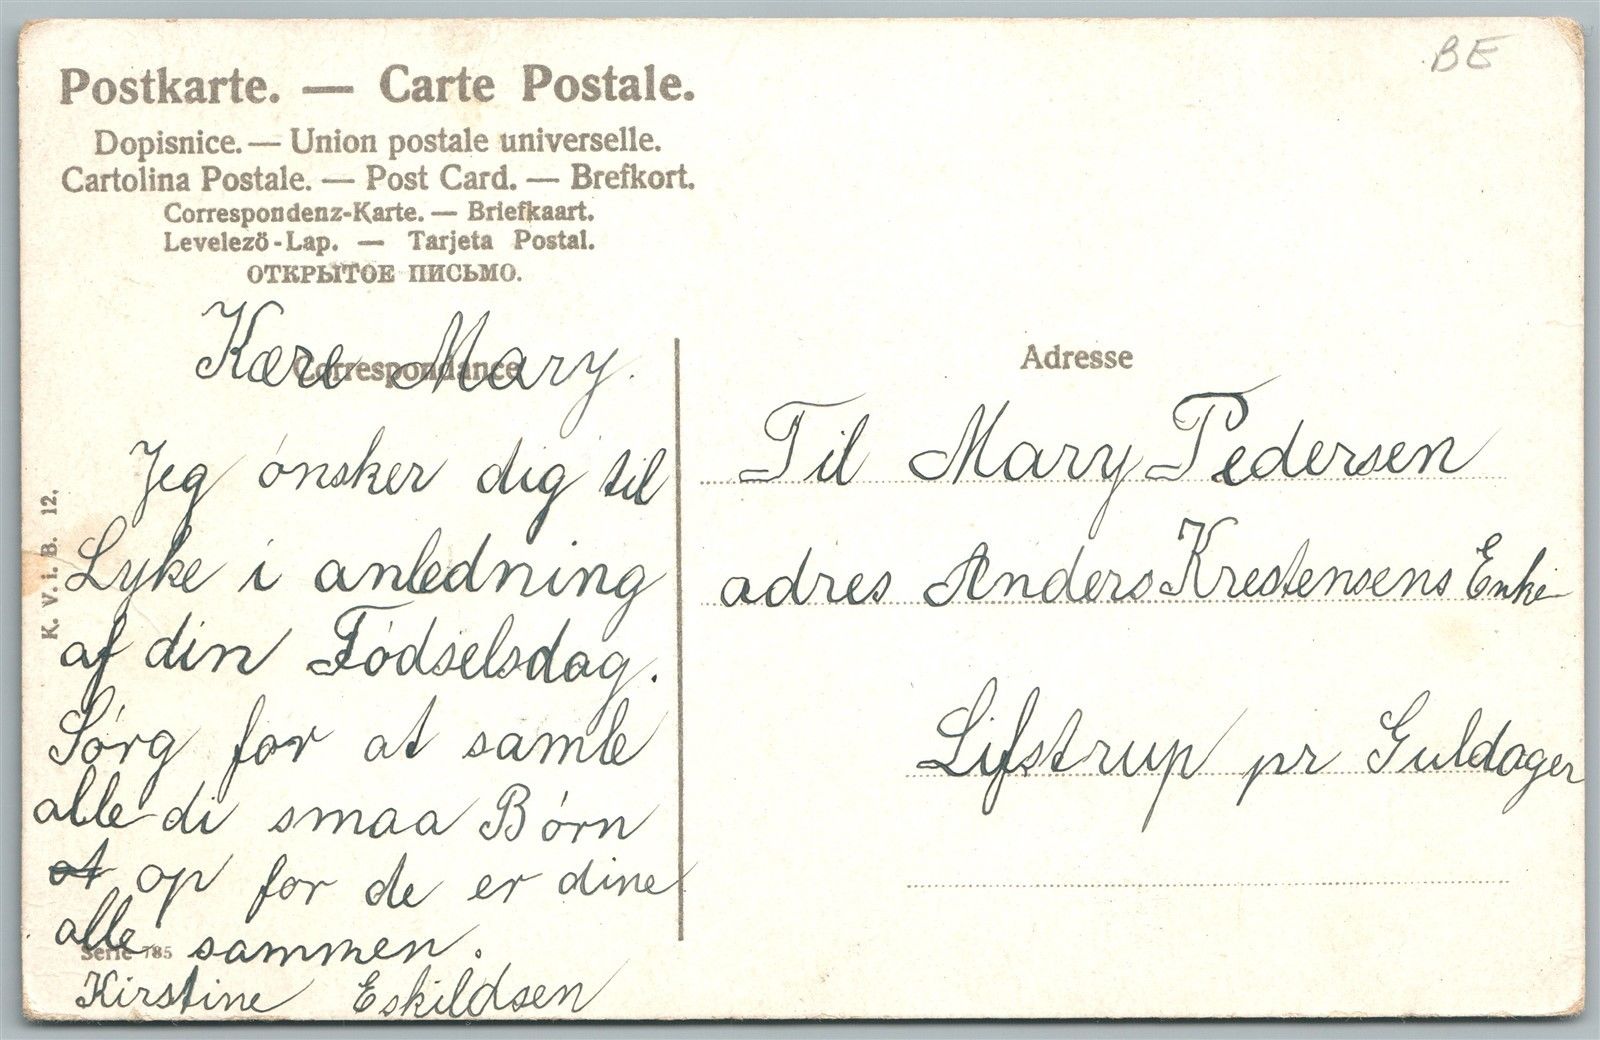 BE
Postkarte. — Carte Postale.
Dopisnice. — Union postale universelle.
Cartolina Postale. — Post Card. — Brefkort.
Correspondenz-Karte. — Briefkaart.
Levelezö-Lap. — Tarjeta Postal.
ОТКРЫТОЕ ПИСЬМО.
Correspondance
Kære Mary.
Jeg ónsker dig til
Lyke i anledning
af din Fódselsdag.
Sórg for at samle
alle di smaa Bórn
at op for de er dine
alle sammen.
Kirstine Eskildsen
K. V. i. B. 12.
Serie 785
Adresse
Til Mary Pedersen
adres Anders Krestensens Enke
Lifstrup pr Guldager